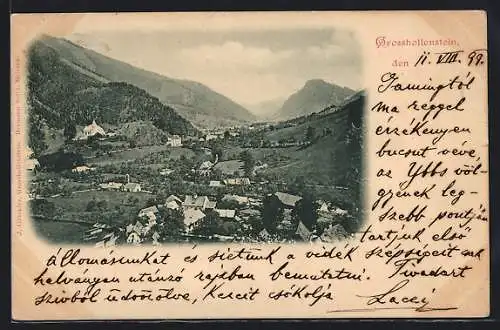 Grosshollenstein,
den 11. VIII. 99.
Jamingtól
ma reggel
érzékenyen
bucsut véve
az Ybbs völ-
gyének leg-
szebb pontján
tartjuk első
állomásunkat és sietünk a vidék szépségeit csak
halványan utánzó rajzban bemutatni. Tiwadart
szivből üdvözölve, Kezeit csókolja
Laczi